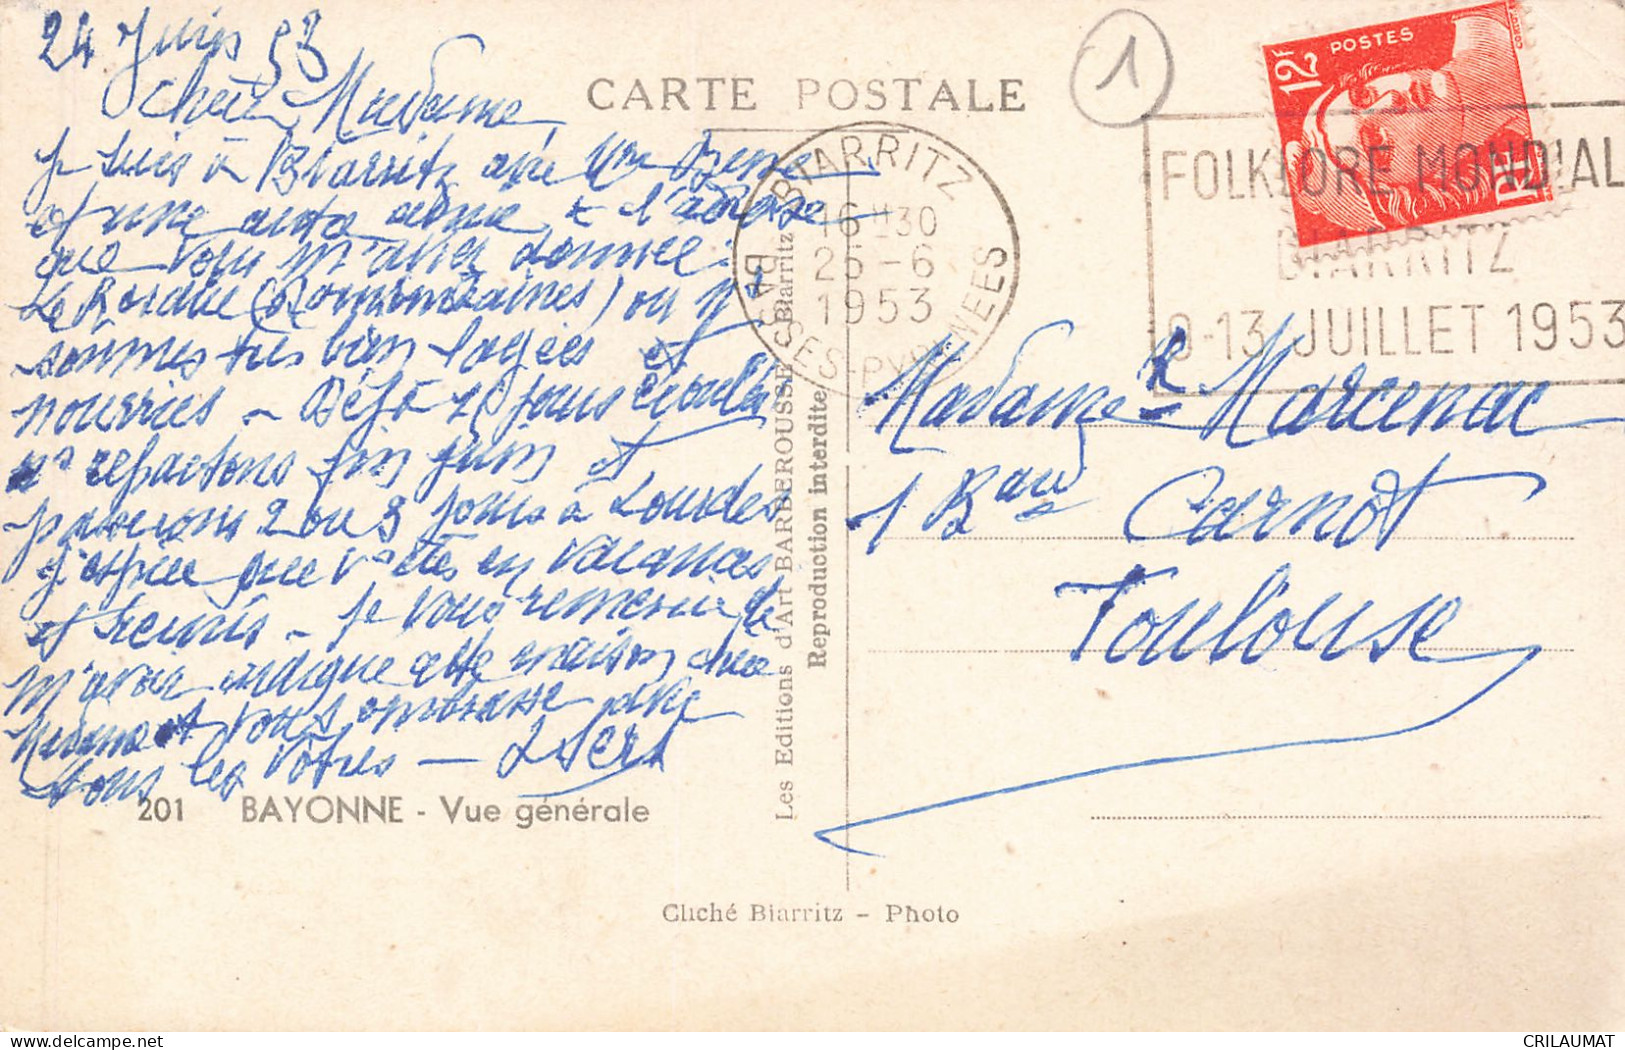 24 Juin 53
Chère Madame,
Je suis à Biarritz avec Mme
et une autre & l'adresse
que vous m'avez donnée :
Le Rosaire (Dominicaines) où ns
sommes très bien logées et
nourries - Déjà jours écoulés
ns repartons fin juin et
passerons 2 ou 3 jours à Lourdes
J'espère que vs êtes en vacances
et réunis - Je vous remercie de
m'avoir indiqué cette maison chère
Madame et vous embrasse ainsi que
tous les vôtres -
201 BAYONNE - Vue générale
CARTE POSTALE
1
POSTES
12F
RF
BIARRITZ
16H30
25-6
1953
BASSES-PYRENEES
FOLKLORE MONDIAL
BIARRITZ
9-13 JUILLET 1953
Les Editions d'Art BARBEROUSSE - Biarritz
Reproduction interdite
Madame Marcenac
1 Bard Carnot
Toulouse
Cliché Biarritz - Photo
CRILAUMAT